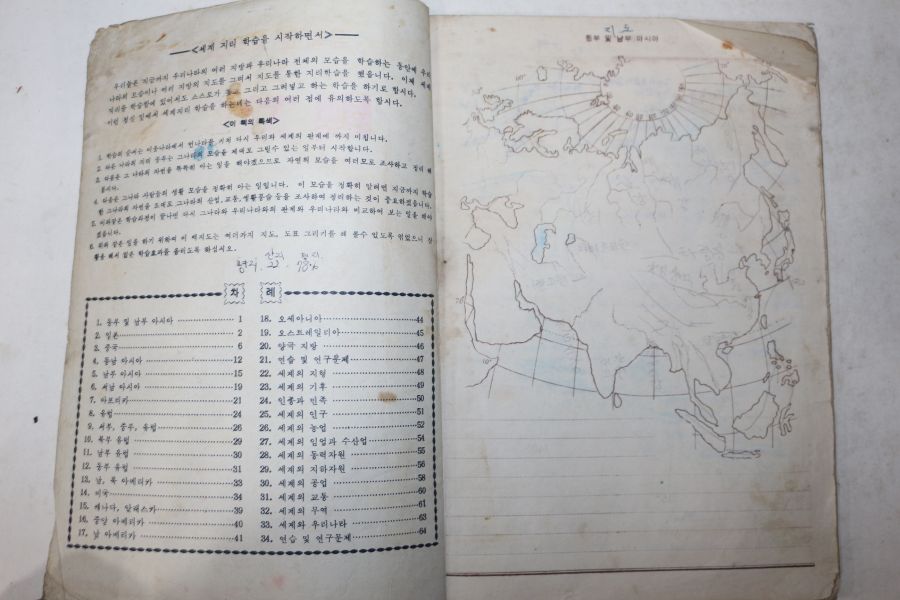 ―<세계 지리 학습을 시작하면서>―
우리들은 지금까지 우리나라의 여러 지방과 우리나라 전체의 모습을 학습하는 동안에 우리
나라의 모습이나 여러 지방의 지도를 그려서 지도를 통한 지리학습을 했읍니다. 이제 세계
지리를 학습함에 있어서도 스스로가 보고 그리고 그려넣고 하는 학습을 하기로 합시다.
이런 정신 밑에서 세계지리 학습을 하는데는 다음의 여러 점에 유의하도록 합시다.
<이 책의 특색>
1. 학습의 순서는 이웃나라에서 먼나라를 거쳐 다시 우리와 세계의 관계에 까지 미칩니다.
2. 다른 나라의 지리 공부는 그나라의 모습을 제대로 그릴수 있는 일부터 시작합니다.
3. 다음은 그 나라의 자연을 똑똑히 아는 일을 해야겠으므로 자연의 모습을 여러모로 조사하고 정리 해
봅시다.
4. 다음은 그나라 사람들의 생활 모습을 정확히 아는 일입니다. 이 모습을 정확히 알려면 지금까지 학습
한 그나라의 자연을 토대로 그나라의 산업, 교통, 생활풍습 등을 조사하여 정리하는 것이 중요하겠습니다.
5. 이와같은 학습과정이 끝나면 다시 그나라와 우리나라와의 관계와 우리나라와 비교하여 보는 일을 해야
겠읍니다.
6. 위와 같은 일을 하기 위하여 이 책지도는 여러가지 지도, 도표 그리기를 해 볼수 있도록 엮었으니
활용 해서 많은 학습효과를 올리도록 하십시오.
차 례
1. 동부 및 남부 아시아 1
2. 일본 2
3. 중국 6
4. 동남 아시아 12
5. 남부 아시아 15
6. 서남 아시아 19
7. 아프리카 21
8. 유럽 24
9. 서부, 중부, 유럽 26
10. 북부 유럽 29
11. 남부 유럽 30
12. 동부 유럽 31
13. 남, 북 아메리카 33
14. 미국 34
15. 캐나다, 알래스카 39
16. 중앙 아메리카 40
17. 남 아메리카 41
18. 오세아니아 44
19. 오스트레일리아 45
20. 양극 지방 46
21. 연습 및 연구문제 47
22. 세계의 지형 48
23. 세계의 기후 49
24. 인종과 민족 50
25. 세계의 인구 51
26. 세계의 농업 52
27. 세계의 임업과 수산업 54
28. 세계의 동력자원 55
29. 세계의 지하자원 56
30. 세계의 공업 58
31. 세계의 교통 60
32. 세계의 무역 61
33. 세계와 우리나라 63
34. 연습 및 연구문제 64
지도
동부 및 남부 아시아